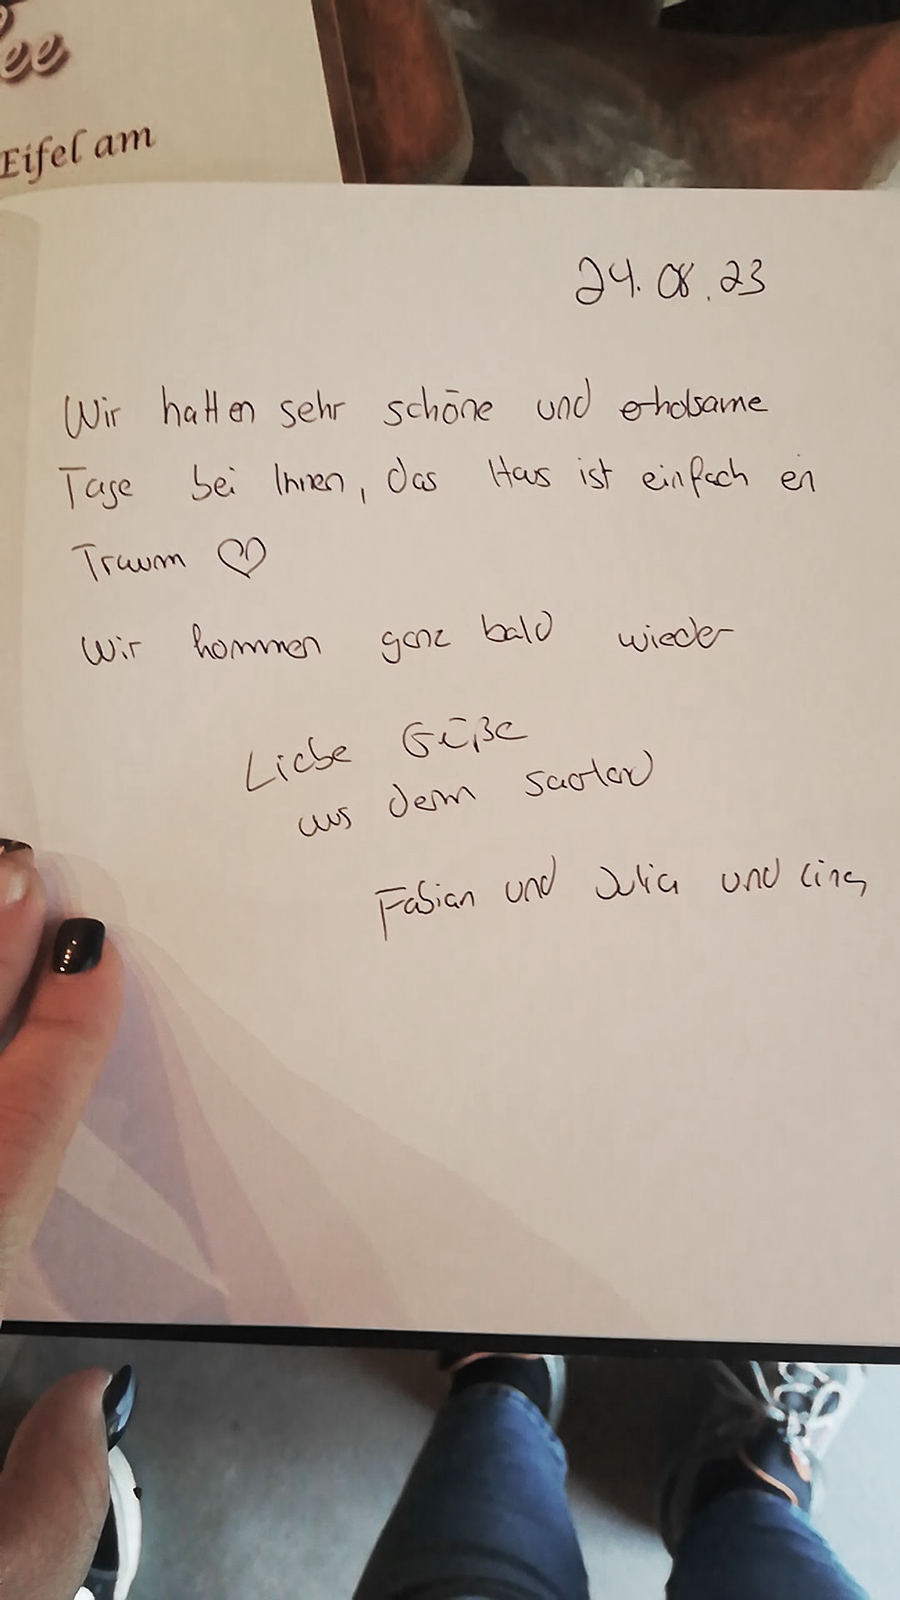 ee
Eifel am
24.08.23
Wir hatten sehr schöne und erholsame
Tage bei Ihnen, das Haus ist einfach ein
Traum ♡
Wir kommen ganz bald wieder
Liebe Grüße
aus dem Saarland
Fabian und Julia und Lina